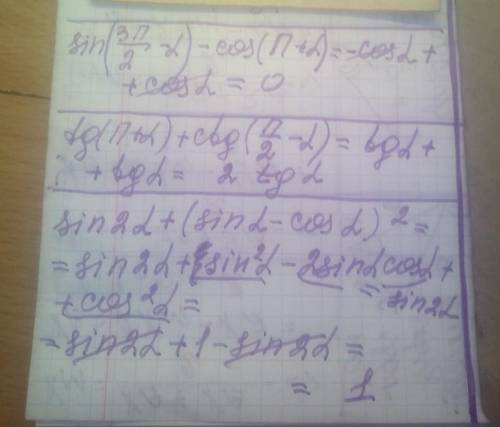 sin(3π/2 - α) - cos(π+α) = -cosα +
+ cosα = 0
tg(π+α) + ctg(π/2 - α) = tgα +
+ tgα = 2 tgα
sin2α + (sinα - cosα)² =
= sin2α + sin²α - 2sinα cosα +
+ cos²α = = sin2α
= sin2α + 1 - sin2α =
= 1